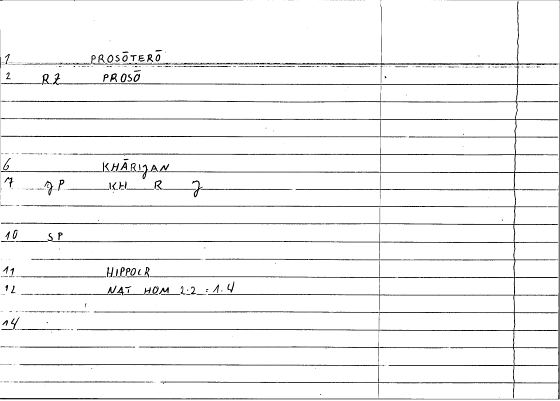 1 PROSŌTERŌ
2 RZ PROSŌ
6 KHĀRIJAN
7 JP KH R J
10 SP
11 HIPPOCR
12 NAT HOM 2.2 : 1.4
14